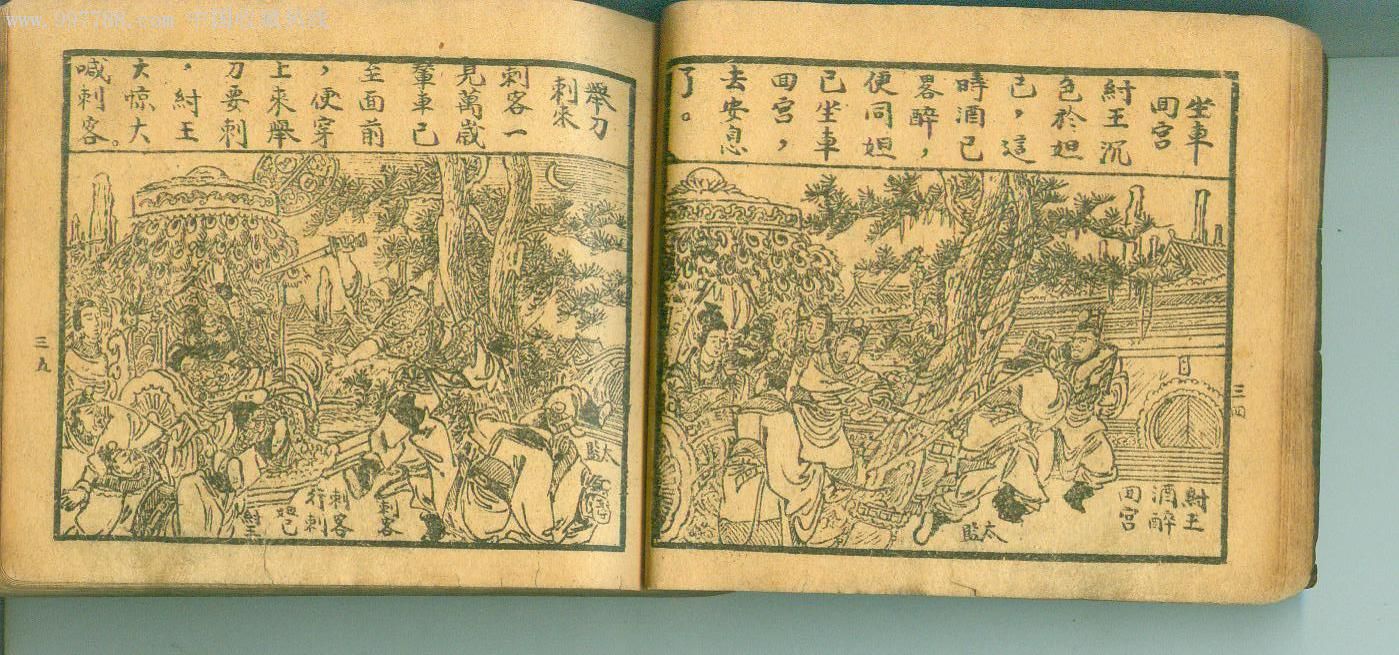 www.997788.com 中国收藏热线
坐車
囬宮
紂王沉
色於妲
已，這
時酒已
畧醉，
便同妲
已坐車
囬宮，
去安息
了。
紂王
酒醉
囬宮
太監
三四
舉刀
刺來
刺客一
見萬歲
輦車已
至面前
，便穿
上來舉
刀要刺
，紂王
大惊大
喊刺客。
太監
刺客
刺客
行刺
妲己
紂王
三九